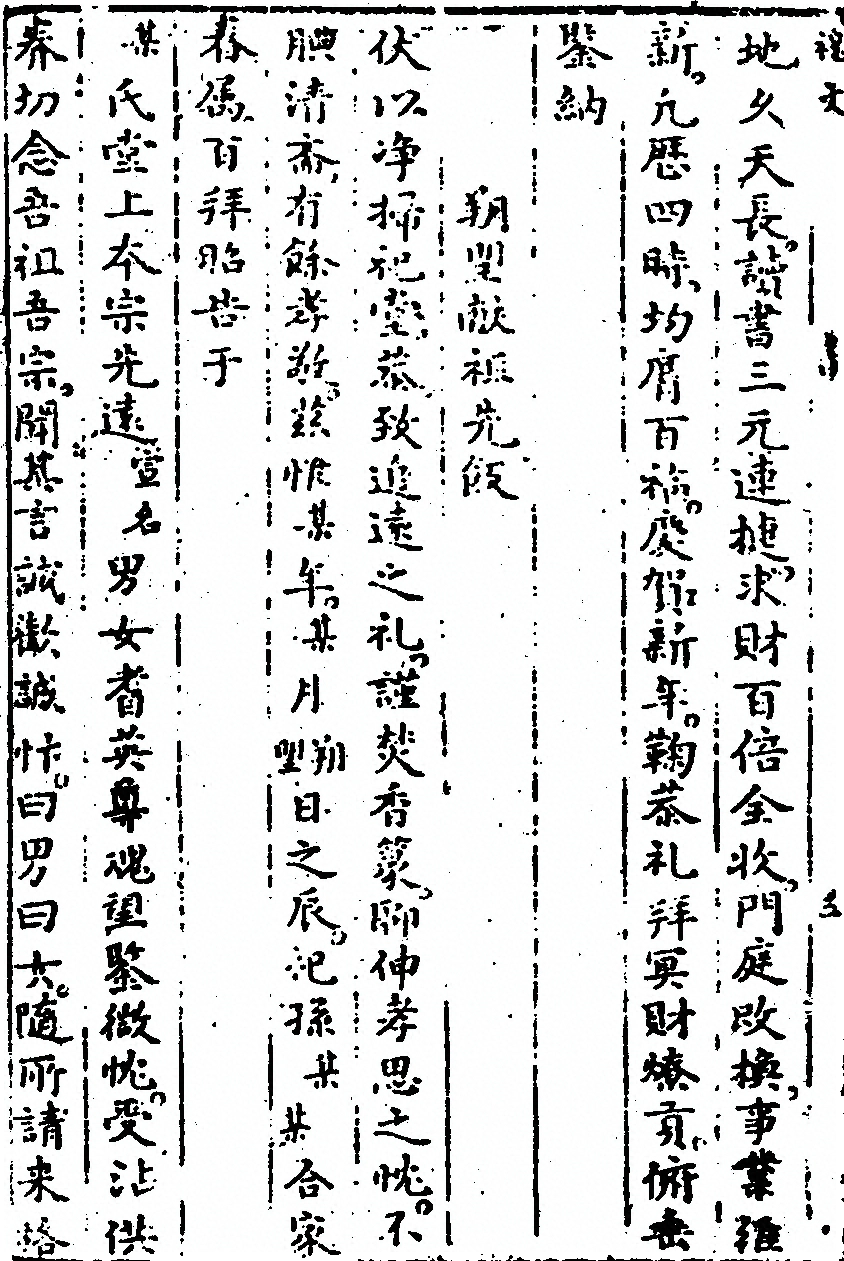 地久天長讀書三元連捷求財百倍全收門庭改換事業維
新凢歷四時均膺百福慶賀新年鞠恭礼拜冥財燎貢俯垂
鑒納
朔望献祖先
伏以净掃祀堂恭致追遠之礼謹焚香篆聊伸孝思之忱不
腆清斋有餘孝敬兹惟某年某月朔望日之辰祀孫某某合家
眷属百拜昭告于
某氏堂上本宗先遠宣名男女耆英尊魂望鑒微忱受沾供
养切念吾祖吾宗聞其言誠歡誠忭曰男曰女隨所請来格